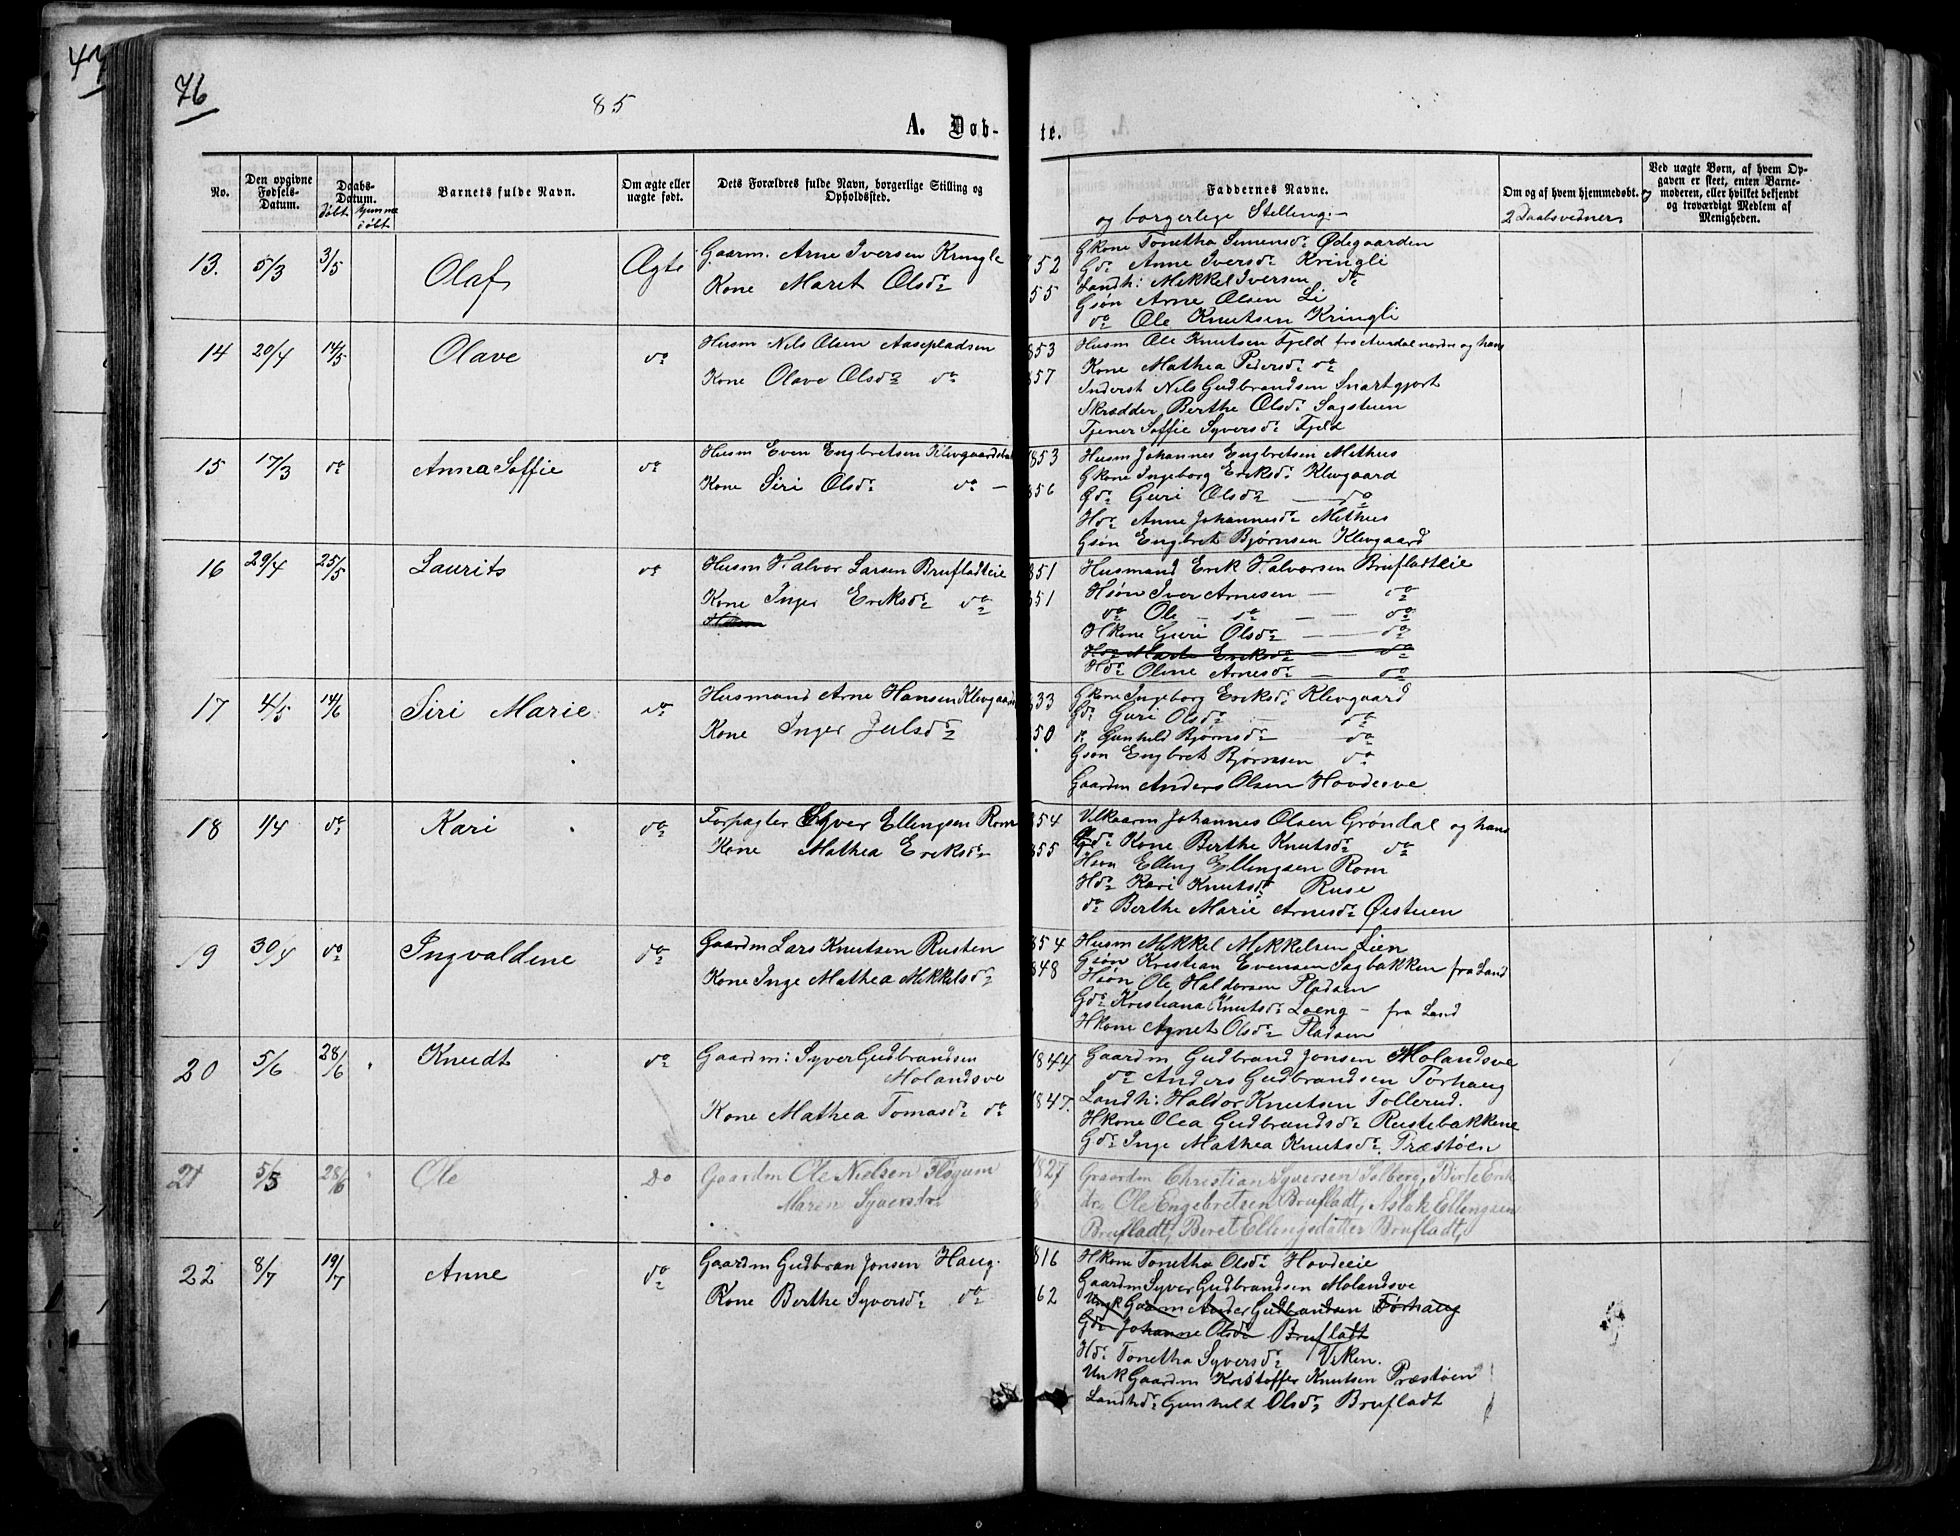 47
76
85
A. Døb-
te.
No.
Den opgivne Fødsels-Datum.
Daabs-Datum.
døbt
hjemme døbt
Barnets fulde Navn.
Om ægte eller uægte født.
Dets Forældres fulde Navn, borgerlige Stilling og Opholdssted.
Faddernes Navne.
og borgerlige Stelling:-
Om og af hvem hjemmedøbt.
2 Daabsvedner
Ved uægte Børn, af hvem Opgaven er skeet, enten Barnemoderen, eller hvilket bekjendt og troværdigt Medlem af Menigheden.
13. 5/3 3/5 Olaf Ægte Gaarm. Arne Iversen Kringle
Kone Marit Olsdr
852
55
Gkone Tonetha Simensdr Ødegaarden
Gdr Anne Iversdr Kringli
Landh: Mikkel Iversen do
Gsøn Arne Olsen Li
do Ole Knutsen Kringli
14 20/4 14/5 Olave do Husm Nils Olsen Aasepladsen
Kone Olave Olsdr do
853
857
Husm Ole Knutsen Fjeld fra Aurdal nordre og hans
Kone Mathea Pedersdr do
Inderst Nils Gudbrandsen Snartgjort
Skrædder Berthe Olsdr Sagstuen
Tjener Soffie Syversdr Fjeld
15 17/3 do Anna Soffie do Husm Even Engbretsen
Kone Siri Olsdr do -
1853
856
Husm Johannes Engbretsen Methus
Gkone Ingeborg Eriksdr Klevgaard
Gdr Guri Olsdr - do
Hdr Anne Johannesdr Methus
Gsøn Engbret Bjørnsen Klevgaard
16 29/4 25/5 Laurits do Husm Halvor Larsen Brufladteie
Kone Inger Eriksdr do
851
851
Husmand Erik Halvorsen Brufladteie
Hsøn Iver Arnesen - do
do Ole - do - - do
Hkone Guri Olsdr - - do
Hdr Marte Eriksdr - do
Hdr Oline Arnesdr - do
17 4/5 14/6 Siri Marie do Husmand Arne Hansen Klevgaard
Kone Inger Julsdr
833
50
Gkone Ingeborg Eriksdr Klevgaard
Gdr Guri Olsdr - do
Gunhild Bjørnsdr do
Gsøn Engbret Bjørnsen do
Gaardm Anders Olsen Hovdesve
18 1/4 do Kari do Forpagter Syver Ellingsen Rom
Kone Mathea Eriksdr
854
855
Vilkaarm Johannes Olsen Grøndal og hans
Kone Berthe Knutsdr do
Hsøn Elling Ellingsen Rom
Hdr Kari Knutsdr Ruse
do Berthe Marie Arnesdr Øistuen
19 30/4 do Ingvaldine do Gaardm Lars Knutsen Rusten
Kone Inge Mathea Mikkelsdr
854
848
Husm Mikkel Mikkelsen Lien
Gsøn Kristian Evensen Sagbakken fra Land
Hsøn Ole Haldorsen Pladsen
Gdr Kristiana Knutsdr Loeng - fra Land
Hkone Agnet Olsdr Pladsen
20 5/6 28/6 Knudt do Gaardm: Syver Gudbrandsen
Molandsve
Kone Mathea Tomasdr do
1844
1847.
Gaardm Gudbrand Jonsen Molandsve
do Anders Gudbrandsen Torhaug
Landh: Haldor Knutsen Tollerud.
Hkone Olea Gudbrandsdr Rustebakkene
Gdr Inge Mathea Knutsdr Præstøen
21 5/5 28/6 Ole Do Gaardm Ole Nielsen Fløgum
Maren Syversdr
1827
8
Graardm Christian Syversen Solberg, Birte Erik
dr, Ole Engebretsen Brufladt, Aslak Ellingsen
Brufladt, Beret Ellingsdatter Brufladt,
22 8/7 19/7 Anne do Gaardm Gudbran Jonsen Haug.
Kone Berthe Syversdr do
816
62
Hkone Tonetha Olsdr Hovdeeie
Gaardm Syver Gudbrandsen Molandsve
Ungk Gaarm Ander Gudbrandsen Torhaug
Gdr Johanne Olsdr Brufladt
Hdr Tonetha Syversdr Viken.
Unk Gaardm Kristoffer Knutsen Præstøen
Landhdr Gunhild Olsdr Brufladt